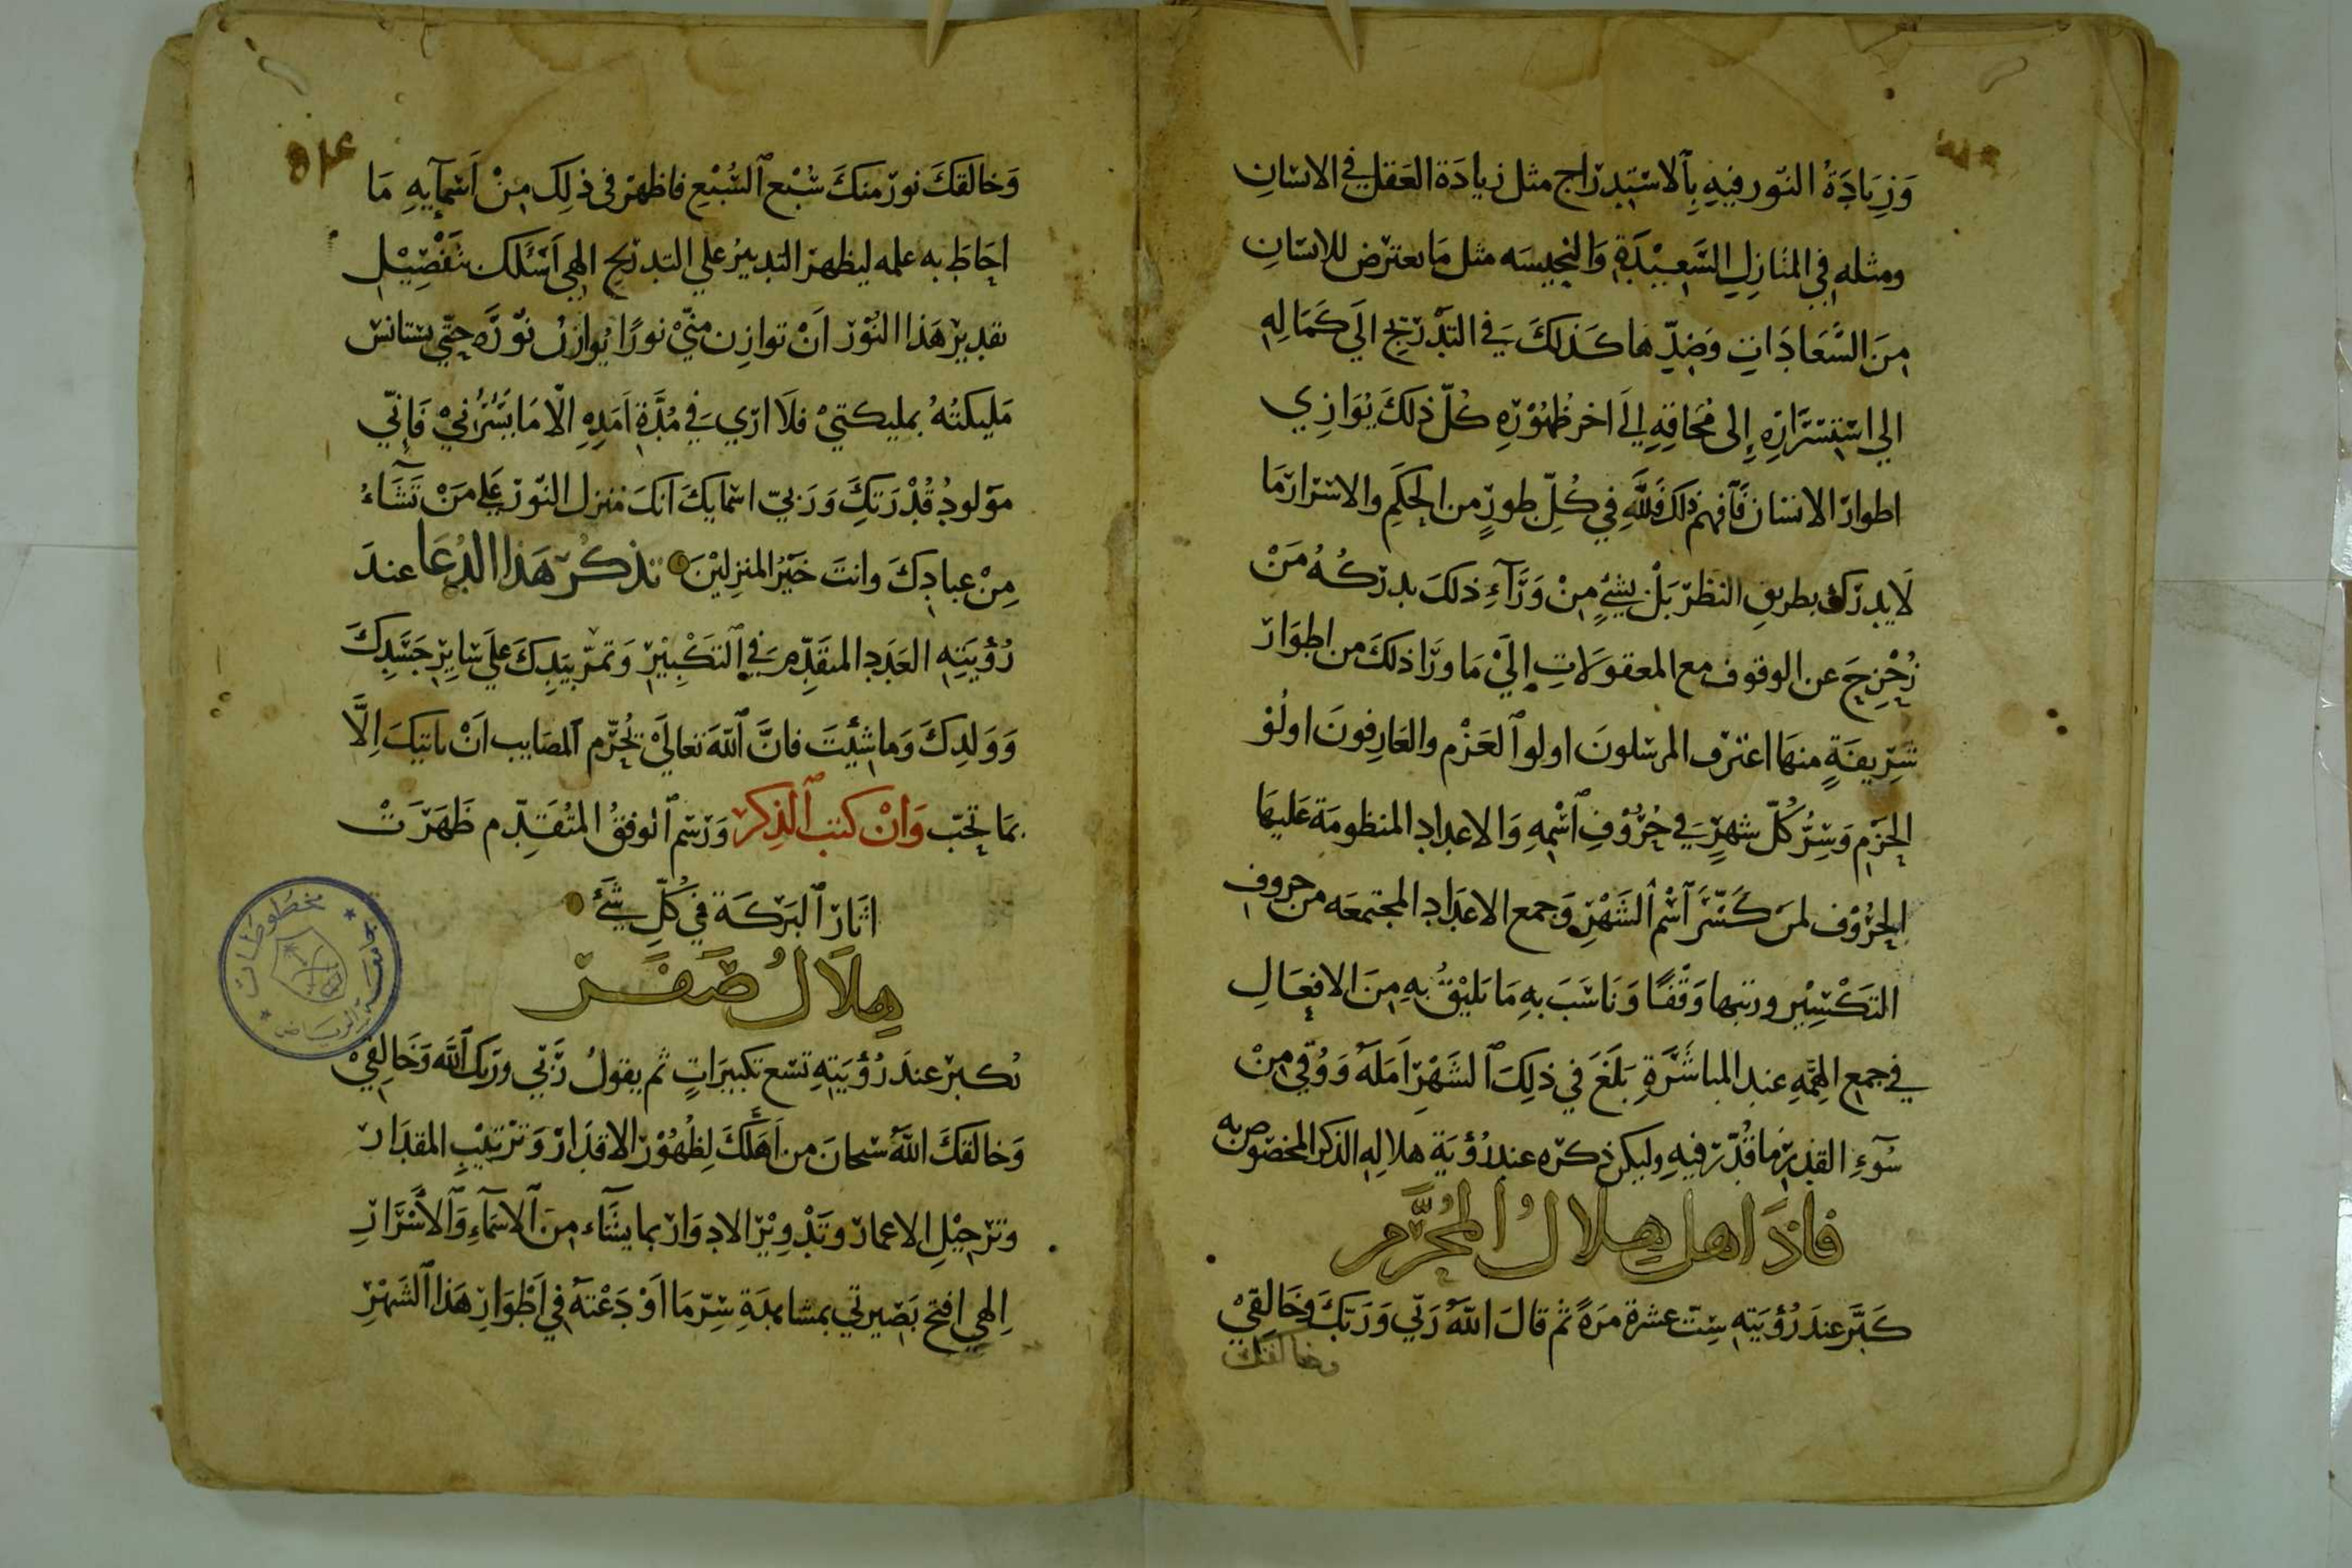 وَزِيَادَةُ النّور فيهِ بِالاسْتِدرَاج مثل زيادَة العَقل في الانسَانِ
ومثله في المنَازِلِ السَّعِيْدَةِ وَالنحيسَه مثل مَا يعترض للانسَانِ
مِنَ السَّعَادَاتِ وَضِدِّهَا كَذلكَ في التَدْرِيج اليَ كَمَالِهِ
الي اسْتِسْرَارِهِ إلى مُحَاقِهِ الَي اخر ظُهُوْرِهِ كُلّ ذلكَ يُوَازِي
اطوارَ الانسَان فَافهَم ذلكَ فَلِلَّهِ في كُلِّ طورٍ من الحِكَمِ والاسْرَار مَا
لَا يدرَك بطريق النظرَ بَلْ بشَيءٍ مِنْ وَرَآءِ ذلكَ يدرَكُهُ مَنْ
زُحْزِحَ عن الوقوف مع المعقولَاتِ إلَيْ مَا ورَا ذلكَ من اطوَارَ
شَرِيفَةٍ منهَا اغترَف المرسَلونَ اولوا العَزْمِ والعَارِفونَ اولُوْ
الحَزمِ وَسِرُّ كُلّ شهرٍ في حُرُوْفِ اسْمِهِ وَالاعدادِ المنظومَة عَليهَا
الحرُوْف لمَن كَسَّرَ اسْم الشَهْرِ وَجمع الاعدَادِ المجتمعَه من حروفِ
التكْسِيْرِ ورَتبها وَفْقًا وَنَاسَبَ بهِ مَا يَلِيْقُ بهِ مِنَ الافعَالِ
في جمع الهِمَّهِ عند المباشَرَةِ بَلَغَ في ذلِكَ الشَهْرِ اَمَلَهُ وَوُقِيَ مِنْ
سُوءِ القَدَرِ مَا قُدِّرَ فيهِ وليكن ذكرَه عند رُؤيَة هلالِهِ الذكر المخصُوص به
فاذَا اهل هِلالُ المُحَرَّم
كَبَّر عندَ رُؤيَتهِ سِتّ عشرَة مَرَةً ثم قالَ اللَّهُ رَبّي وَرَبّكَ وخَالِقِيْ
وخالقك
وَخالقكَ نور منكَ سُبْع السُبْعِ فاظهرَ في ذلِكَ مِنْ اَسْمآيهِ مَا
احَاطَ به علمه ليظهرَ التدبيرُ علي التدرَيج الهي اَسْئلكَ بتَفْضِيْل
تقدِيرَ هَذا النُوْر اَنْ توازِن منّيْ نورًا يُوازِنُ نوْرَه حتّي يستانسَ
مَليكتُهُ بمليكتيْ فلَا ارَي في مُدَّةِ اَمَدِهِ الّا مَا يَسُرُّنيْ فَإنّي
موَلودُ قُدْرَتِكَ وَرَبيّ اسمَايِكَ انكَ مُنزل النّورَ عَلي مَنْ تَشَاءُ
مِنْ عبادِكَ وانتَ خَيْرُ المنزِلِيْنَ تذكُر هَذا الدُعَا عندَ
رُؤيَتِهِ العَدَدِ المتقدِّم في التَكْبِيْرِ وَتمرّ بيَدِكَ علي سَايِرِ جَسَدِكَ
وَوَلدِكَ وَما شِئْتَ فانَّ اللّهَ تعَاليَْ يُحَرّم المصَايب اَنْ ياتيكَ اِلّا
بمَا تحبّ وَانْ كتب الذِكر وَرَسْم الوفقُ المتُقَدِّم ظَهَرَتْ
اثَارَ البَرَكَة في كُلِّ شَيءٍ
هِلَالُ صَفَر
تُكبرْ عندَ رُؤيَتِهِ تسع تكبيرَاتٍ ثم يقولُ رَبّي ورَبّكَ اللَّه وَخَالِقِيْ
وَخالقكَ اللَّهُ سُبحانَ من اَهَلَّكَ لِظُهُوْرِ الاقدَار وَترْتيْبِ المقدَار
وَترَحِيْلِ الاعمارَ وَتَدْوِيْرِ الادوَار بما يشَاء مِنَ الاسْمَاءِ وَالاسْرَارِ
اِلهِي افتح بَصَيرتي بمشاهدَةِ سِرّ مَا اَوْدَعْتَهُ في اَطْوَارِ هَذا الشَهْرِ
مخطوطات
جامعة الرياض